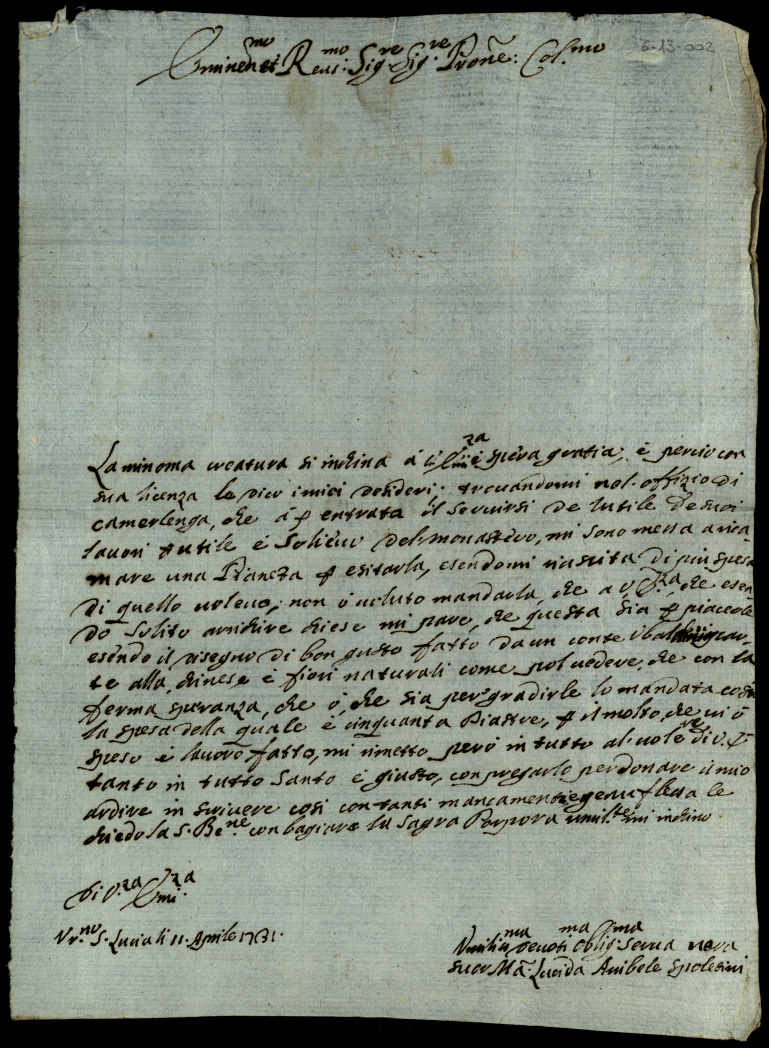 6-13-002
Eminen.mo et Reus:mo Sig.re Sig.re Prone: Col.mo
La minoma creatura si inchina á spera gratia, é perciò con
sua licenza le dico i miei desideri: trovandomi nel offizio di
camerlenga, che á p entrata il servirsi de lutile de suoi
lavori utile é del monastero, mi sono messa a rica
mare una Pianeta p esitarla, esendomi riuscita di piu spesa
di quello volevo, non ó voluto mandarla, che a V che esen
do solito arichire chiese mi pare, che questa sia p piacerle
esendo il disegno di bon gusto fatto da un conte
te alla chinese é fiori naturali come pol vedere, che con la
ferma speranza, che ó, che sia per gradirle lo mandata costi
la spesa della quale é cinquanta Piastre, p il molto, che vi ó
speso é lavoro fatto, mi rimetto peró in tutto al vole.re di V.
tanto in tutto Santo é giusto, con pregarlo perdonare il mio
ardire in scrivere cosi con tanti mancamenti e genuflessa le
chiedo la S. Be.ne con bagiare la Sagra Porpora umil.te mi inchino.
Di V.ra Em.za
Vr.no S. Lucia li 11. Aprile 1731.
Umilis.ma Devoti.ma Oblig.ma Serva vera
Suor Ma. Lucida Anibele Spolesini